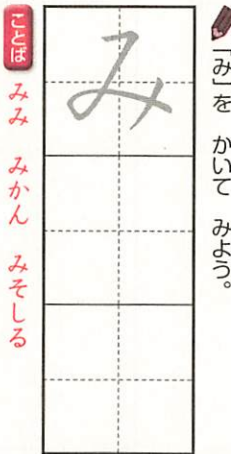 「み」を かいて みよう。
み
ことば みみ みかん みそしる